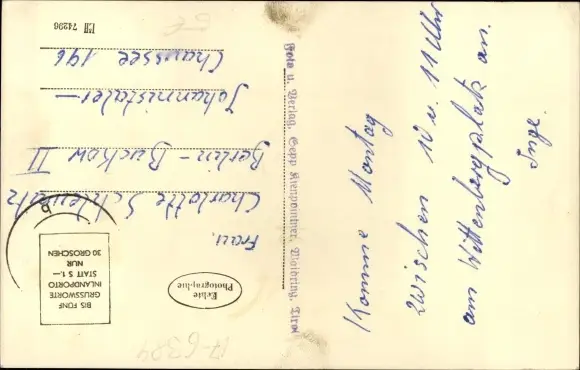 Komme Montag
zwischen 10 u. 11 Uhr
am Wittenbergplatz an.
Inge.
Foto u. Verlag, Sepp Kienpointner, Waidring, Tirol
Echte
Photographie
BIS FÜNF
GRUSSWORTE
INLANDPORTO
STATT S 1.—
NUR
30 GROSCHEN
Frau.
Charlotte
Berlin - Buckow II
Johannistaler—
Chaussee 196
74296
A-6324